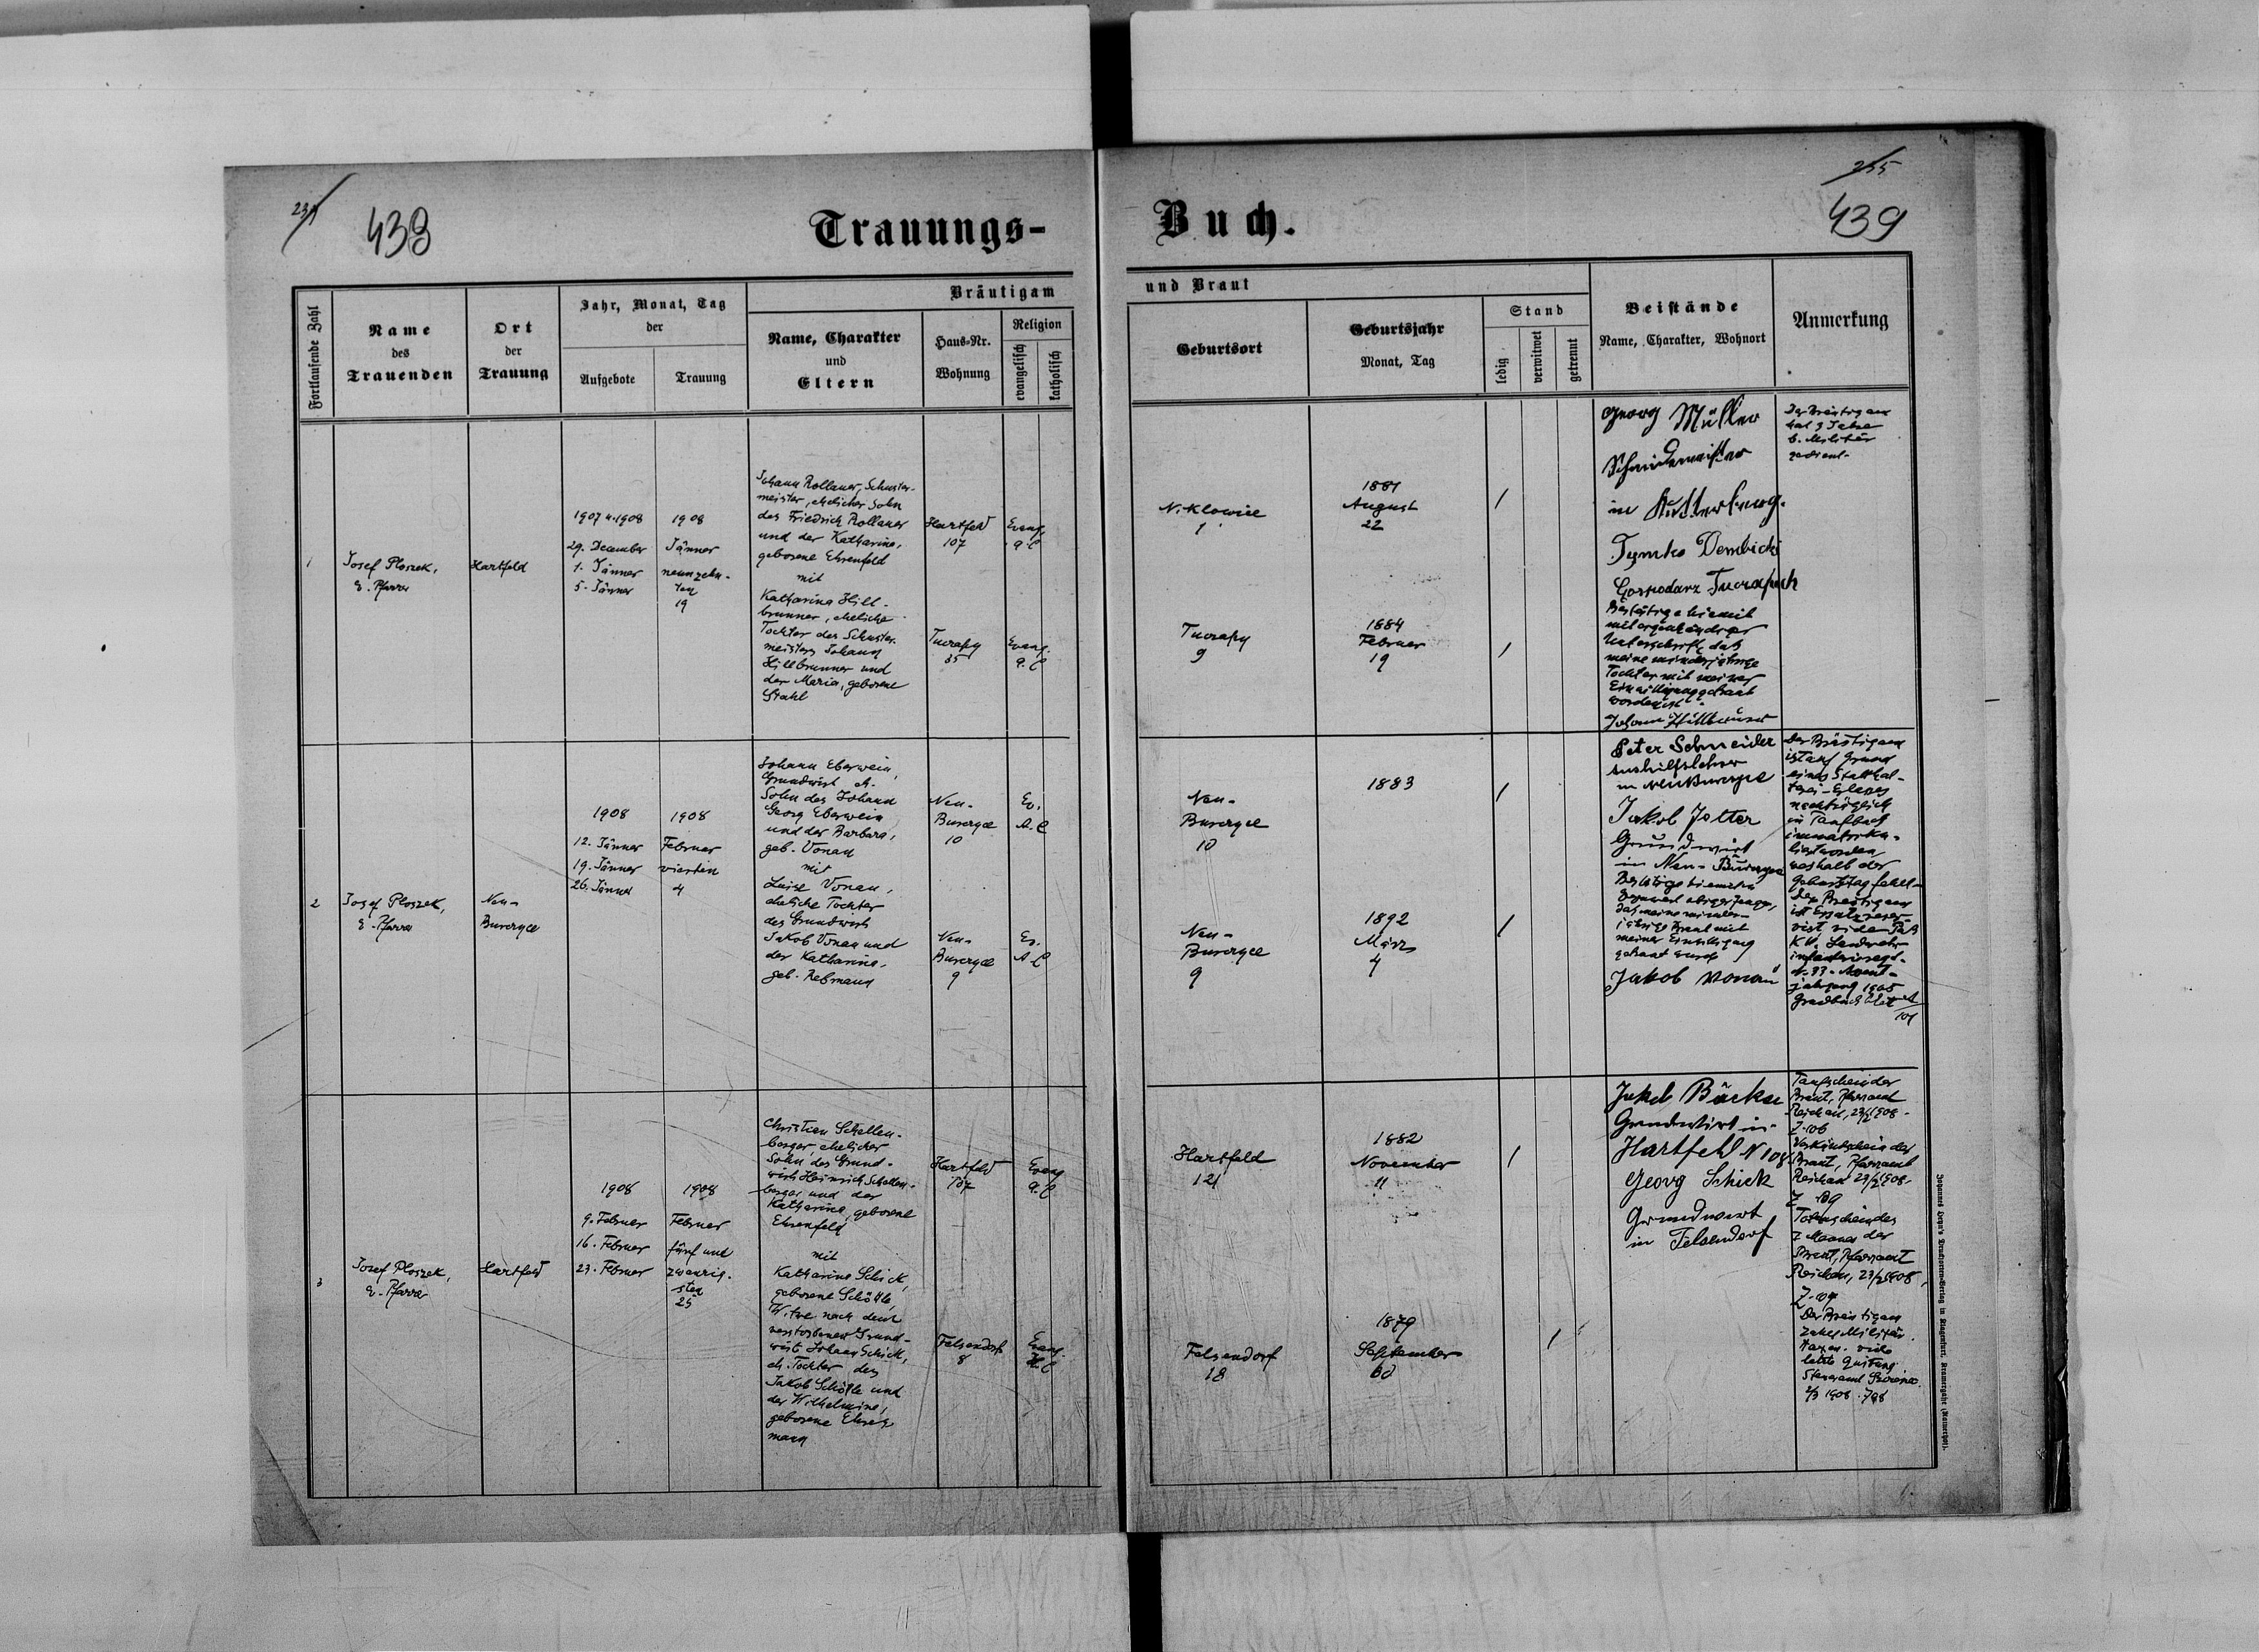 438
439
255
Trauungs-
Buch.
Fortlaufende Zahl
Name
des
Trauenden
Ort
der
Trauung
Jahr, Monat, Tag
der
Aufgebote
Trauung
Bräutigam
Name, Charakter
und
Eltern
Haus-Nr.
Wohnung
Religion
evangelisch
katholisch
und Braut
Geburtsort
Geburtsjahr
Monat, Tag
Stand
ledig
verwitwet
getrennt
Beistände
Name, Charakter, Wohnort
Anmerkung
1
Josef Ploszek,
E. Pfarrer
Hartfeld
1907 u. 1908
29. December
1. Jänner
5. Jänner
1908
Jänner
neunzehn-
ten
19
Johann Rollauer, Schuster-
meister, ehelicher Sohn
des Friedrich Rollauer
und der Katharina,
geborene Ehrenfeld
mit
Katharina Hill-
brunner, eheliche
Tochter des Schuster-
meisters Johann
Hillbrunner und
der Maria, geborene
Stahl
Hartfeld
107
Evang.
A. C
Tuczapy
35
Evang.
A. C
N. Klowice
1
1881
August
22
Tuczapy
9
1884
Februar
19
Georg Müller
Schneidermeister
in
Tymko Dembicki
Gospodarz
Bestätige hiemit
mit eigenhändiger
Unterschrift, daß
meine minderjährige
Tochter mit meiner
Einwilligung getraut
worden ist.
Johann Hillbrunner
Der Bräutigam
hat 3 Jahre
b. Militär
gedient.
2
Josef Ploszek,
E. Pfarrer
Neu-
Burczyce
1908
12. Jänner
19. Jänner
26. Jänner
1908
Februar
vierten
4
Johann Eberwein,
Grundwirt, eh.
Sohn des Johann
Georg Eberwein
und der Barbara,
geb. Vonau
mit
Luise Vonau,
eheliche Tochter
des Grundwirts
Jakob Vonau und
der Katharina,
geb. Rebmann
Neu-
Burczyce
10
Ev.
A. C
Neu-
Burczyce
9
Ev.
A. C
Neu-
Burczyce
10
1883
Neu-
Burczyce
9
1892
März
4
Peter Schneider
Aushilfslehrer
in Neu Burczyce
Jakob Jotter
Grundwirt
in Neu-Burczyce
Bestätige hiemit in
Gegenwart obiger Zeugen,
daß meine minder-
jährige Braut mit
meiner Einwilligung
getraut wurde
Jakob Vonau
Der Bräutigam
ist auf Grund
eines Statthal-
terei-Erlasses
nachträglich
im Taufbuch
immatriku-
liert worden,
weshalb der
Geburtstag fehlt.
Der Bräutigam
ist Ersatzreser-
vist vide Paß
K.K. Landwehr
infanterieregt.
N. 33. Assent-
jahrgang 1905
Grundbuch blatt
101
3
Josef Ploszek,
E. Pfarrer
Hartfeld
1908
9. Februar
16. Februar
23. Februar
1908
Februar
fünf und
zwanzig-
sten
25
Christian Schellen-
berger, ehelicher
Sohn des Grund-
wirts Heinrich Schellen-
berger und der
Katharina, geborene
Ehrenfeld
mit
Katharina Schick,
geborene Schöttle,
Witwe nach dem
verstorbenen Grund-
wirt Johann Schick,
eh. Tochter des
Jakob Schöttle und
der Wilhelmine,
geborene Ehren-
mann
Hartfeld
107
Evang
A. C
Felsendorf
8
Evang.
H. C
Hartfeld
121
1882
November
11
Felsendorf
18
1879
September
Jakob Bäcker
Grundwirt in
Hartfeld N 108
Georg Schick
Grundwirt
in Felsendorf
Taufschein der
Braut, Pfarramt
Reichau, 23/2 1908.
Z. 106
Verkündschein der
Braut, Pfarramt
Reichau 23/2 1908.
Z. 109
Totenschein des
I Mannes der
Braut, Pfarramt
Reichau, 23/2 1908,
Der Bräutigam
zahlt Militär
taxen. vide
letzte Quittung
Steueramt
2/3 1908.
Johannes Heyn's Drucksorten-Verlag in Klagenfurt, Kramergasse